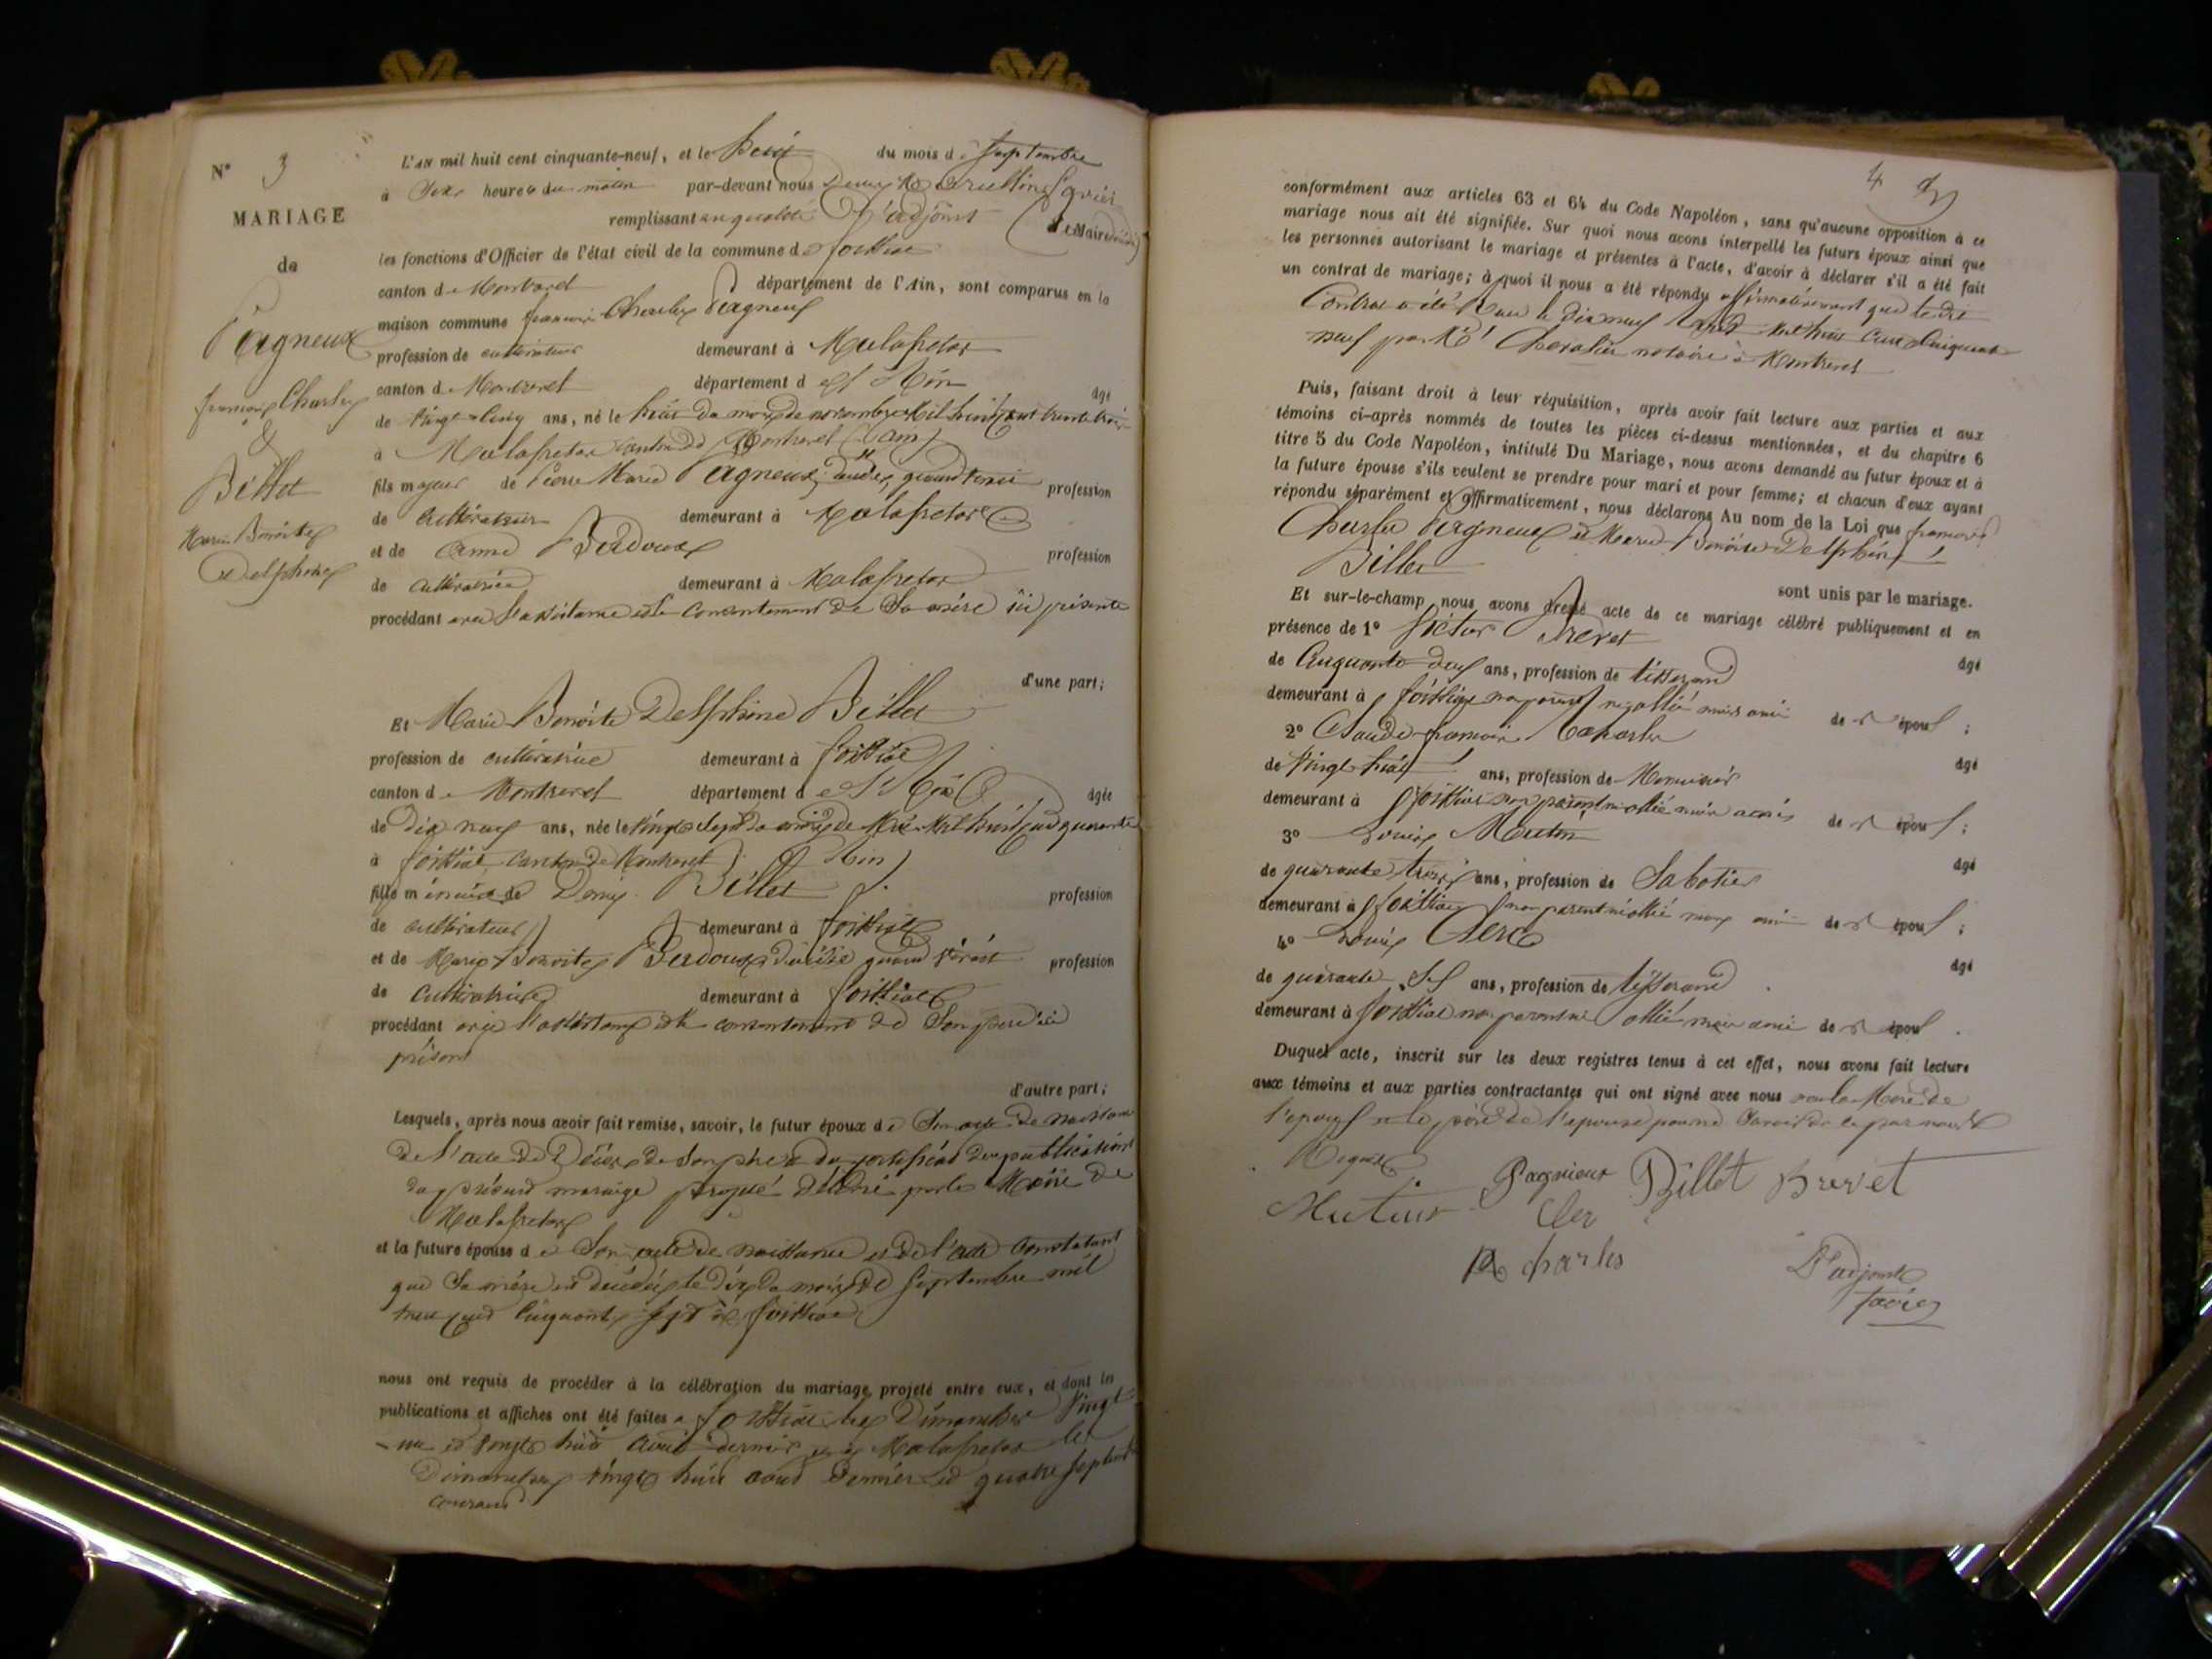 N° 3
MARIAGE
de
Pagneux
françois Charles
&
Billet
Marie Benoite
Delphine
L'AN mil huit cent cinquante-neuf, et le huit du mois de septembre
à Dix heures du matin par-devant nous
remplissant en qualité d'adjoint
les fonctions d'Officier de l'état civil de la commune de foissiat
canton de Montrevel département de l'Ain, sont comparus en la
maison commune françois Charles Pagneux
profession de cultivateur demeurant à Malafretaz
canton de Montrevel département de l'Ain âgé
de vingt-cinq ans, né le huit du mois de novembre mil huit cent trente trois
à Malafretaz canton de Montrevel (Ain)
fils majeur de Pierre Marie Pagneux, profession
de cultivateur demeurant à Malafretaz
et de Anne Berdoux profession
de cultivatrice demeurant à Malafretaz
procédant avec l'assistance et le consentement de Sa mère ici présente
d'une part;
Et Marie Benoite Delphine Billet
profession de cultivatrice demeurant à foissiat
canton de Montrevel département de l'Ain âgée
de dix neuf ans, née le vingt Sept du mois de Mai mil huit cent quarante
à foissiat canton de Montrevel (Ain)
fille mineure de Denis Billet profession
de cultivateur demeurant à foissiat
et de Marie Benoite Berdoux décédée quand vivait profession
de cultivatrice demeurant à foissiat
procédant avec l'assistance et le consentement de Son père ici
présent
d'autre part;
Lesquels, après nous avoir fait remise, savoir, le futur époux de Son acte de naissance
de l'acte de Décès de Son père et du certificat des publications
du présent mariage projeté délivré par le Maire de
Malafretaz
et la future épouse de Son acte de naissance et de l'acte Constatant
que Sa mère est décédée le dix du mois de Septembre mil
huit cent Cinquante Sept à foissiat
nous ont requis de procéder à la célébration du mariage projeté entre eux, et dont les
publications et affiches ont été faites à foissiat les Dimanches Vingt-
un et vingt huit Août dernier et à Malafretaz les
Dimanches vingt huit août dernier et quatre Septembre
courant
conformément aux articles 63 et 64 du Code Napoléon, sans qu'aucune opposition à ce
mariage nous ait été signifiée. Sur quoi nous avons interpellé les futurs époux ainsi que
les personnes autorisant le mariage et présentes à l'acte, d'avoir à déclarer s'il a été fait
un contrat de mariage; à quoi il nous a été répondu affirmativement que ledit
Contrat a été Reçu le dix neuf Août mil huit Cent Cinquante
neuf par Chevalier notaire à Montrevel
Puis, faisant droit à leur réquisition, après avoir fait lecture aux parties et aux
témoins ci-après nommés de toutes les pièces ci-dessus mentionnées, et du chapitre 6
titre 5 du Code Napoléon, intitulé Du Mariage, nous avons demandé au futur époux et à
la future épouse s'ils veulent se prendre pour mari et pour femme; et chacun d'eux ayant
répondu séparément et affirmativement, nous déclarons Au nom de la Loi que françois
Charles Pagneux et Marie Benoite Delphine
Billet
sont unis par le mariage.
Et sur-le-champ nous avons dressé acte de ce mariage célébré publiquement et en
présence de 1° Victor Brevet
âgé
de Cinquante deux ans, profession de tisserand
demeurant à foissiat non parent ni allié mais ami des époux;
2° Claude françois Charles
âgé
de vingt huit ans, profession de Menuisier
demeurant à foissiat non parent ni allié mais ami des époux;
3° Louis Mutin
âgé
de quarante trois ans, profession de Sabotier
demeurant à foissiat non parent ni allié mais ami des époux;
4° Louis Clerc
âgé
de quarante ans, profession de tisserand
demeurant à foissiat non parent ni allié mais ami des époux.
Duquel acte, inscrit sur les deux registres tenus à cet effet, nous avons fait lecture
aux témoins et aux parties contractantes qui ont signé avec nous non la Mère de
l'époux et le père de l'épouse pour ne Savoir de ce par nous
Requis
Pagneux Billet Brevet
Mutin Cler
charles
L'adjoint